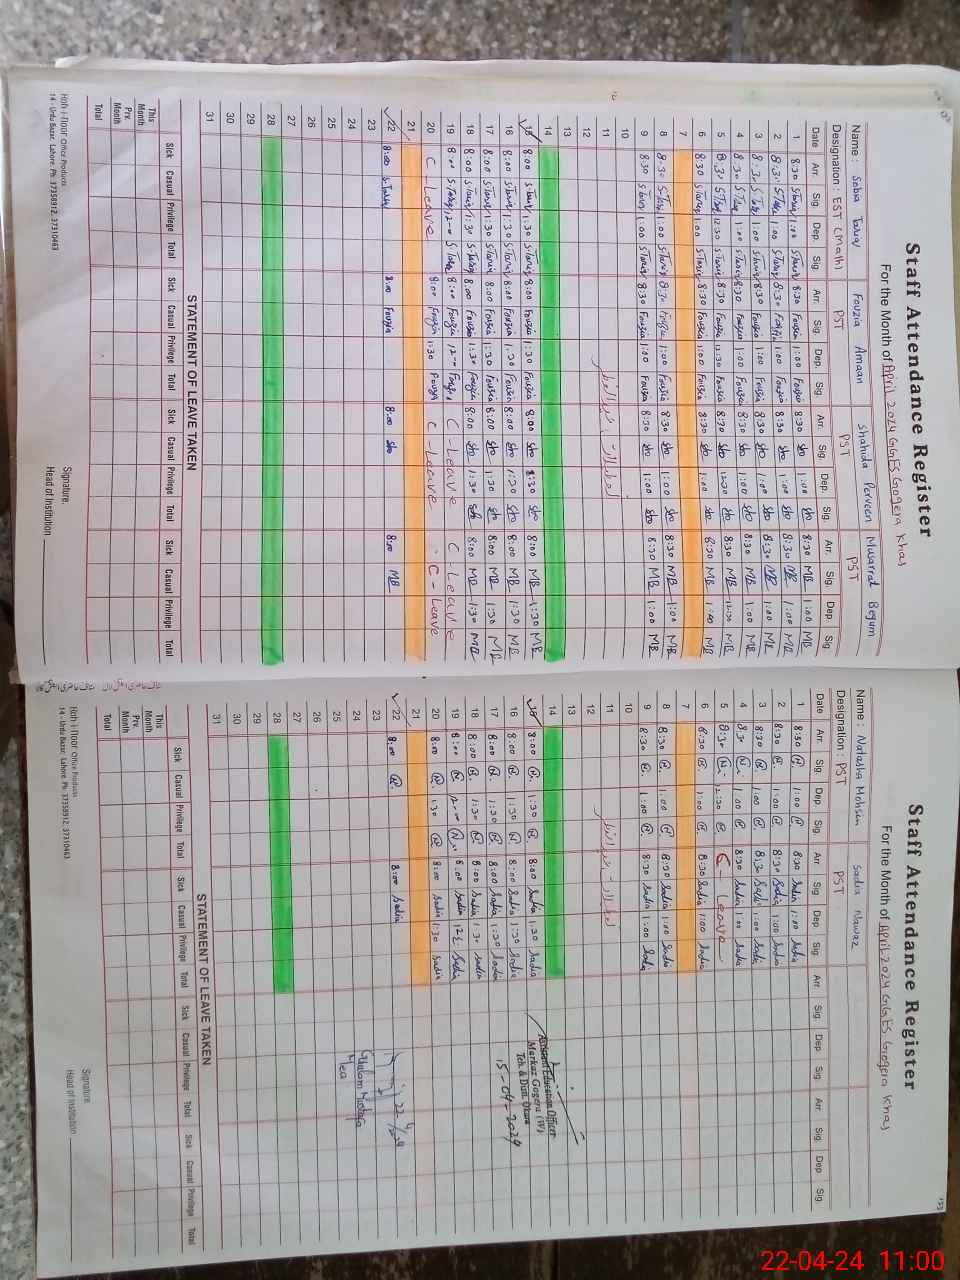 Staff Attendance Register
For the Month of April 2024 GGES Gogera Khas
Name : Sobia Tariq Fouzia Amaan Shahida Perveen Musarrat Begum
Designation : EST (Math) PST PST PST
Date Arr. Sig. Dep. Sig. Arr. Sig. Dep. Sig. Arr. Sig. Dep. Sig. Arr. Sig. Dep. Sig.
1 8:30 S.Tariq 1:00 S.Tariq 8:30 Fouzia 1:00 Fouzia 8:30 Sho 1:00 Sho 8:30 MB 1:00 MB
2 8:30 S.Tariq 1:00 S.Tariq 8:30 Fouzia 1:00 Fouzia 8:30 Sho 1:00 Sho 8:30 MB 1:00 MB
3 8:30 S.Tariq 1:00 S.Tariq 8:30 Fouzia 1:00 Fouzia 8:30 Sho 1:00 Sho 8:30 MB 1:00 MB
4 8:30 S.Tariq 1:00 S.Tariq 8:30 Fouzia 1:00 Fouzia 8:30 Sho 1:00 Sho 8:30 MB 1:00 MB
5 8:30 S.Tariq 12:30 S.Tariq 8:30 Fouzia 12:30 Fouzia 8:30 Sho 12:30 Sho 8:30 MB 12:30 MB
6 8:30 S.Tariq 1:00 S.Tariq 8:30 Fouzia 1:00 Fouzia 8:30 Sho 1:00 Sho 8:30 MB 1:00 MB
7
8 8:30 S.Tariq 1:00 S.Tariq 8:30 Fouzia 1:00 Fouzia 8:30 Sho 1:00 Sho 8:30 MB 1:00 MB
9 8:30 S.Tariq 1:00 S.Tariq 8:30 Fouzia 1:00 Fouzia 8:30 Sho 1:00 Sho 8:30 MB 1:00 MB
10
11
12
13
14
15 8:00 S.Tariq 1:30 S.Tariq 8:00 Fouzia 1:30 Fouzia 8:00 Sho 8:30 Sho 8:00 MB 1:30 MB
16 8:00 S.Tariq 1:30 S.Tariq 8:00 Fouzia 1:30 Fouzia 8:00 Sho 1:30 Sho 8:00 MB 1:30 MB
17 8:00 S.Tariq 1:30 S.Tariq 8:00 Fouzia 1:30 Fouzia 8:00 Sho 1:30 Sho 8:00 MB 1:30 MB
18 8:00 S.Tariq 1:30 S.Tariq 8:00 Fouzia 1:30 Fouzia 8:00 Sho 1:30 Sho 8:00 MB 1:30 MB
19 8:00 S.Tariq 12:00 S.Tariq 8:00 Fouzia 12:00 Fouzia C - Leave C - Leave
20 C - Leave 8:00 Fouzia 1:30 Fouzia C - Leave C - Leave
21
22 8:00 S.Tariq 8:00 Fouzia 8:00 Sho 8:00 MB
23
24
25
26
27
28
29
30
31
STATEMENT OF LEAVE TAKEN
Sick Casual Privilege Total Sick Casual Privilege Total Sick Casual Privilege Total Sick Casual Privilege Total
This Month
Prv. Month
Total
Signature.
Head of Institution
Koh-i-Noor Office Products
14 - Urdu Bazar, Lahore. Ph: 37358912, 37310463
Staff Attendance Register
For the Month of April 2024 GGES Gogera Khas
Name : Natasha Mohsin Sadia Nawaz
Designation : PST PST
Date Arr. Sig. Dep. Sig. Arr Sig. Dep. Sig. Arr. Sig. Dep Sig. Arr. Sig. Dep Sig
1 8:30 1:00 8:30 Sadia 1:00 Sadia
2 8:30 1:00 8:30 Sadia 1:00 Sadia
3 8:30 1:00 8:30 Sadia 1:00 Sadia
4 8:30 1:00 8:30 Sadia 1:00 Sadia
5 8:30 12:30 C - Leave
6 8:30 1:00 8:30 Sadia 1:00 Sadia
7
8 8:30 1:00 8:30 Sadia 1:00 Sadia
9 8:30 1:00 8:30 Sadia 1:00 Sadia
10
11
12
13
14
15 8:00 1:30 8:00 Sadia 1:30 Sadia
16 8:00 1:30 8:00 Sadia 1:30 Sadia
17 8:00 1:30 8:00 Sadia 1:30 Sadia
18 8:00 1:30 8:00 Sadia 1:30 Sadia
19 8:00 12:00 8:00 Sadia 12: Sadia
20 8:00 1:30 8:00 Sadia 1:30 Sadia
21
22 8:00 8:00 Sadia
23
24
25
26
27
28
29
30
31
Assistant Education Officer
Markaz Gogera (W)
Teh. & Distt. Okara
15-04-2024
22/4/2024
Gulam Murtaza
Mea
STATEMENT OF LEAVE TAKEN
Sick Casual Privilege Total Sick Casual Privilege Total Sick Casual Privilege Total Sick Casual Privilege Total
This Month
Prv. Month
Total
Signature
Head of Institution
Koh-i-Noor Office Products
14 - Urdu Bazar, Lahore. Ph: 37358912, 37310463
123
22-04-24 11:00